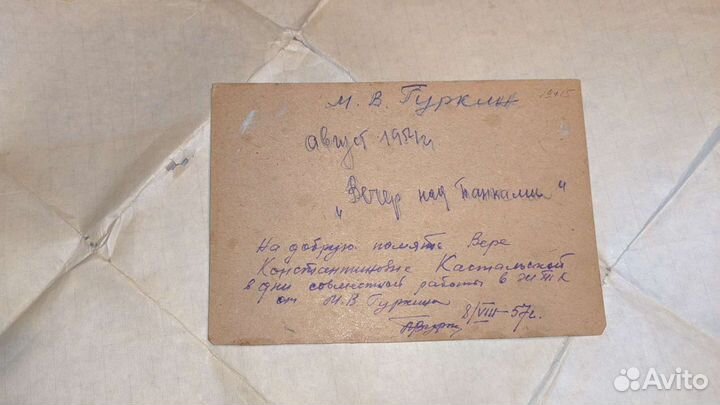 М. В. Гуркин
август 1954г
"Вечер над Банками"
На добрую память Вере
Константиновне Кастальской
в дни совместной работы в
от М. В. Гуркина
8/VIII-57г.
Avito